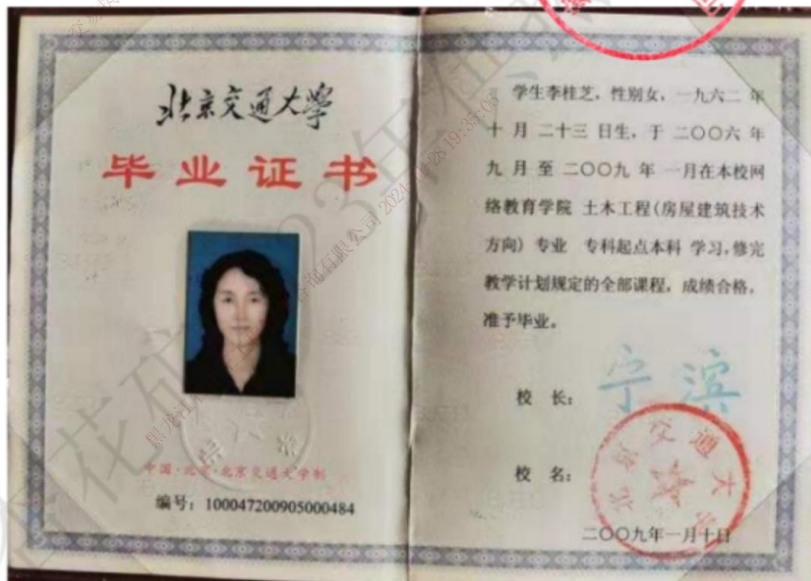 北京交通大學
毕业证书
中国·北京·北京交通大学制
编号：100047200905000484
学生李桂芝，性别女，一九六二 年
十 月 二十三 日生，于 二〇〇六 年
九 月 至 二〇〇九 年 一月在本校网
络教育学院 土木工程(房屋建筑技术
方向) 专业 专科起点本科 学习，修完
教学计划规定的全部课程，成绩合格，
准予毕业。
校 长：
宁滨
校 名：
北京交通大学
二〇〇九年一月十日